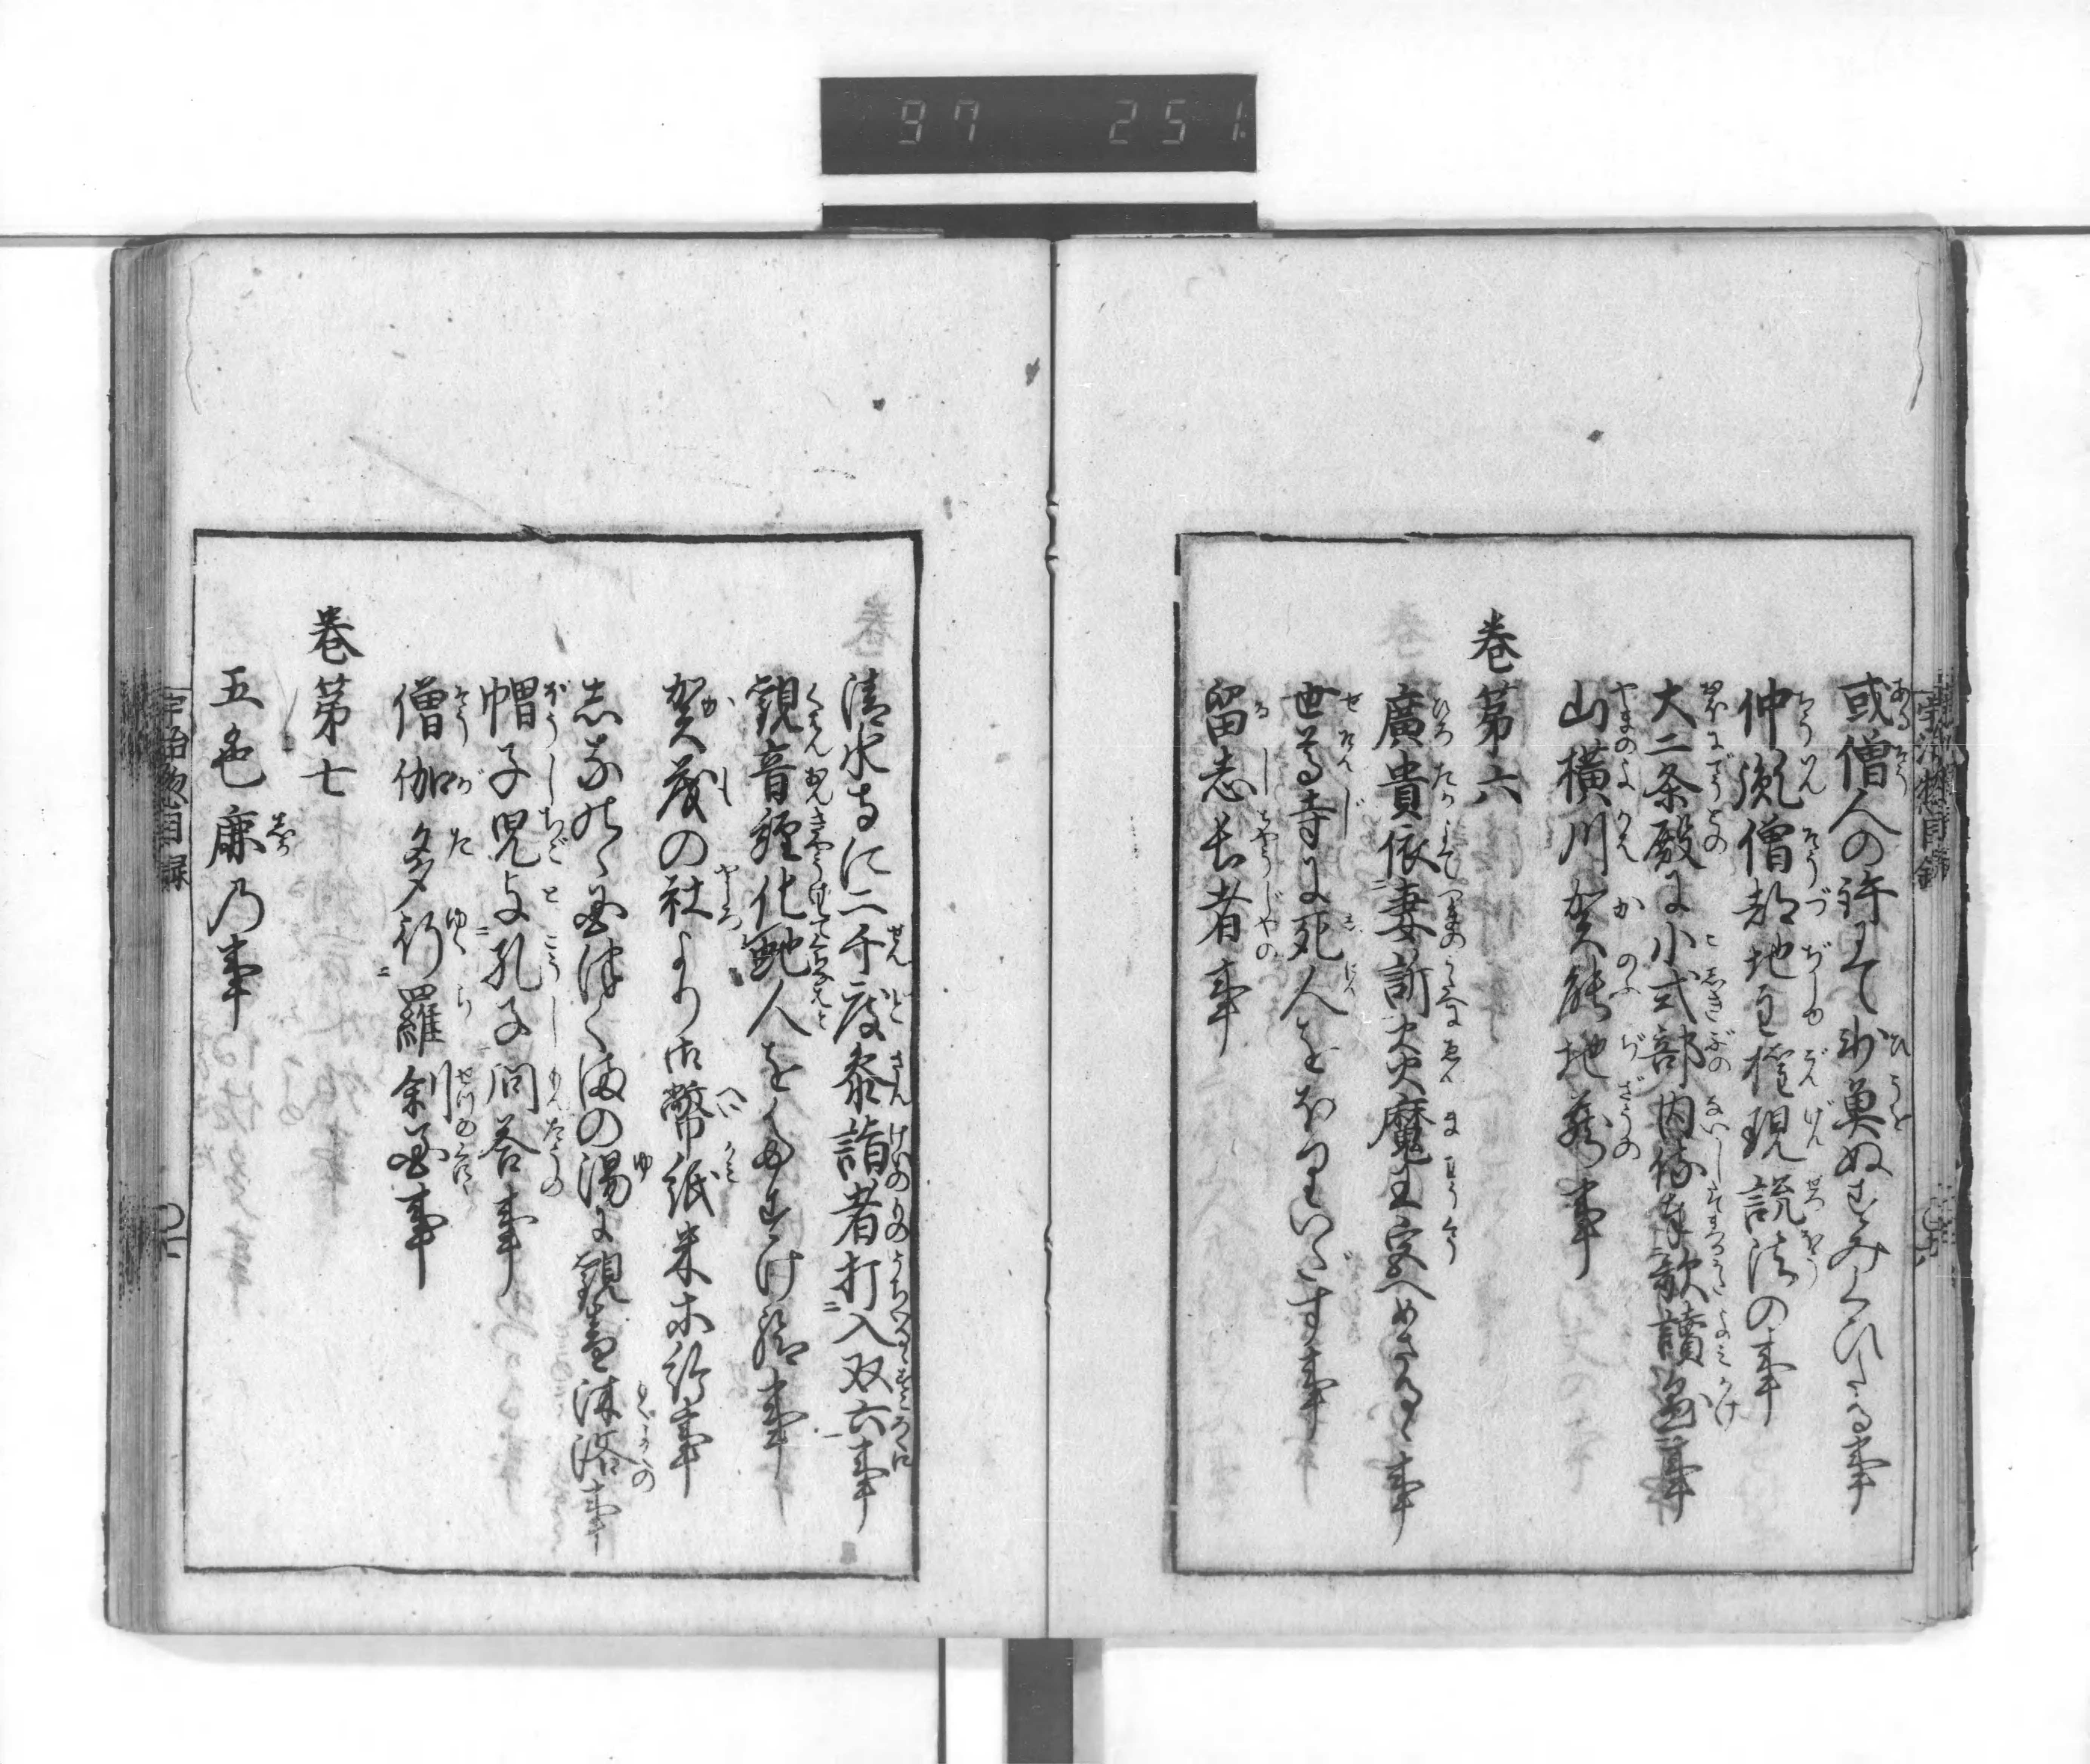 97 251
或僧人の許にて氷魚ぬすみくひたる事
仲胤僧都地主権現説法の事
大二条殿に小式部内侍奉歌読懸事
山横川賀能地蔵事
巻第六
廣貴依妻訴炎魔王宮へめさるゝ事
世尊寺に死人をほりいだす事
留志長者事
清水寺に二千度参詣者打入双六事
観音経化蛇人をたすけ給事
賀茂の社より御幣紙米等給事
志なのゝ国つくまの湯に観音沐浴事
帽子児与孔子問答事
僧伽多行羅刹国事
巻第七
五色鹿乃事
宇治惣目録